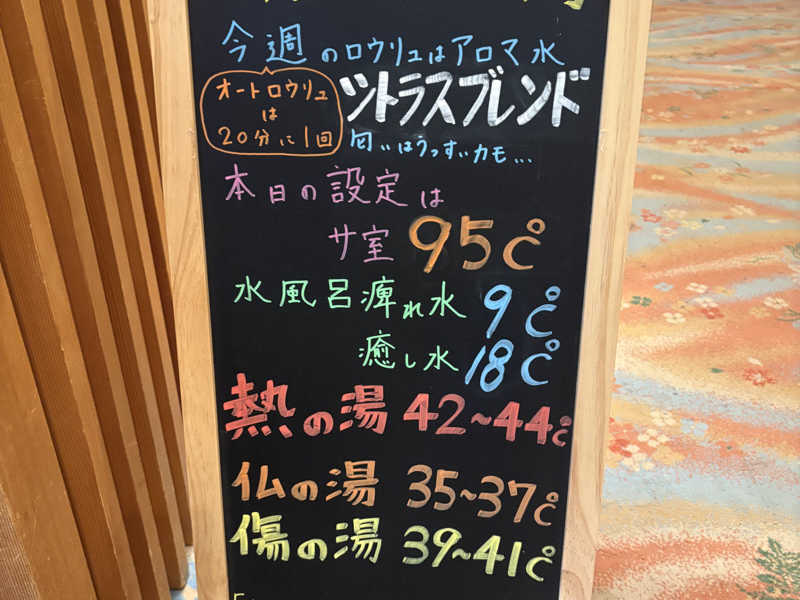 今週のロウリュはアロマ水
オートロウリュ
は
20分に1回
シトラスブレンド
匂いはうっすいカモ...
本日の設定は
サ室 95℃
水風呂痺れ水 9℃
癒し水 18℃
熱の湯 42~44℃
仏の湯 35~37℃
傷の湯 39~41℃